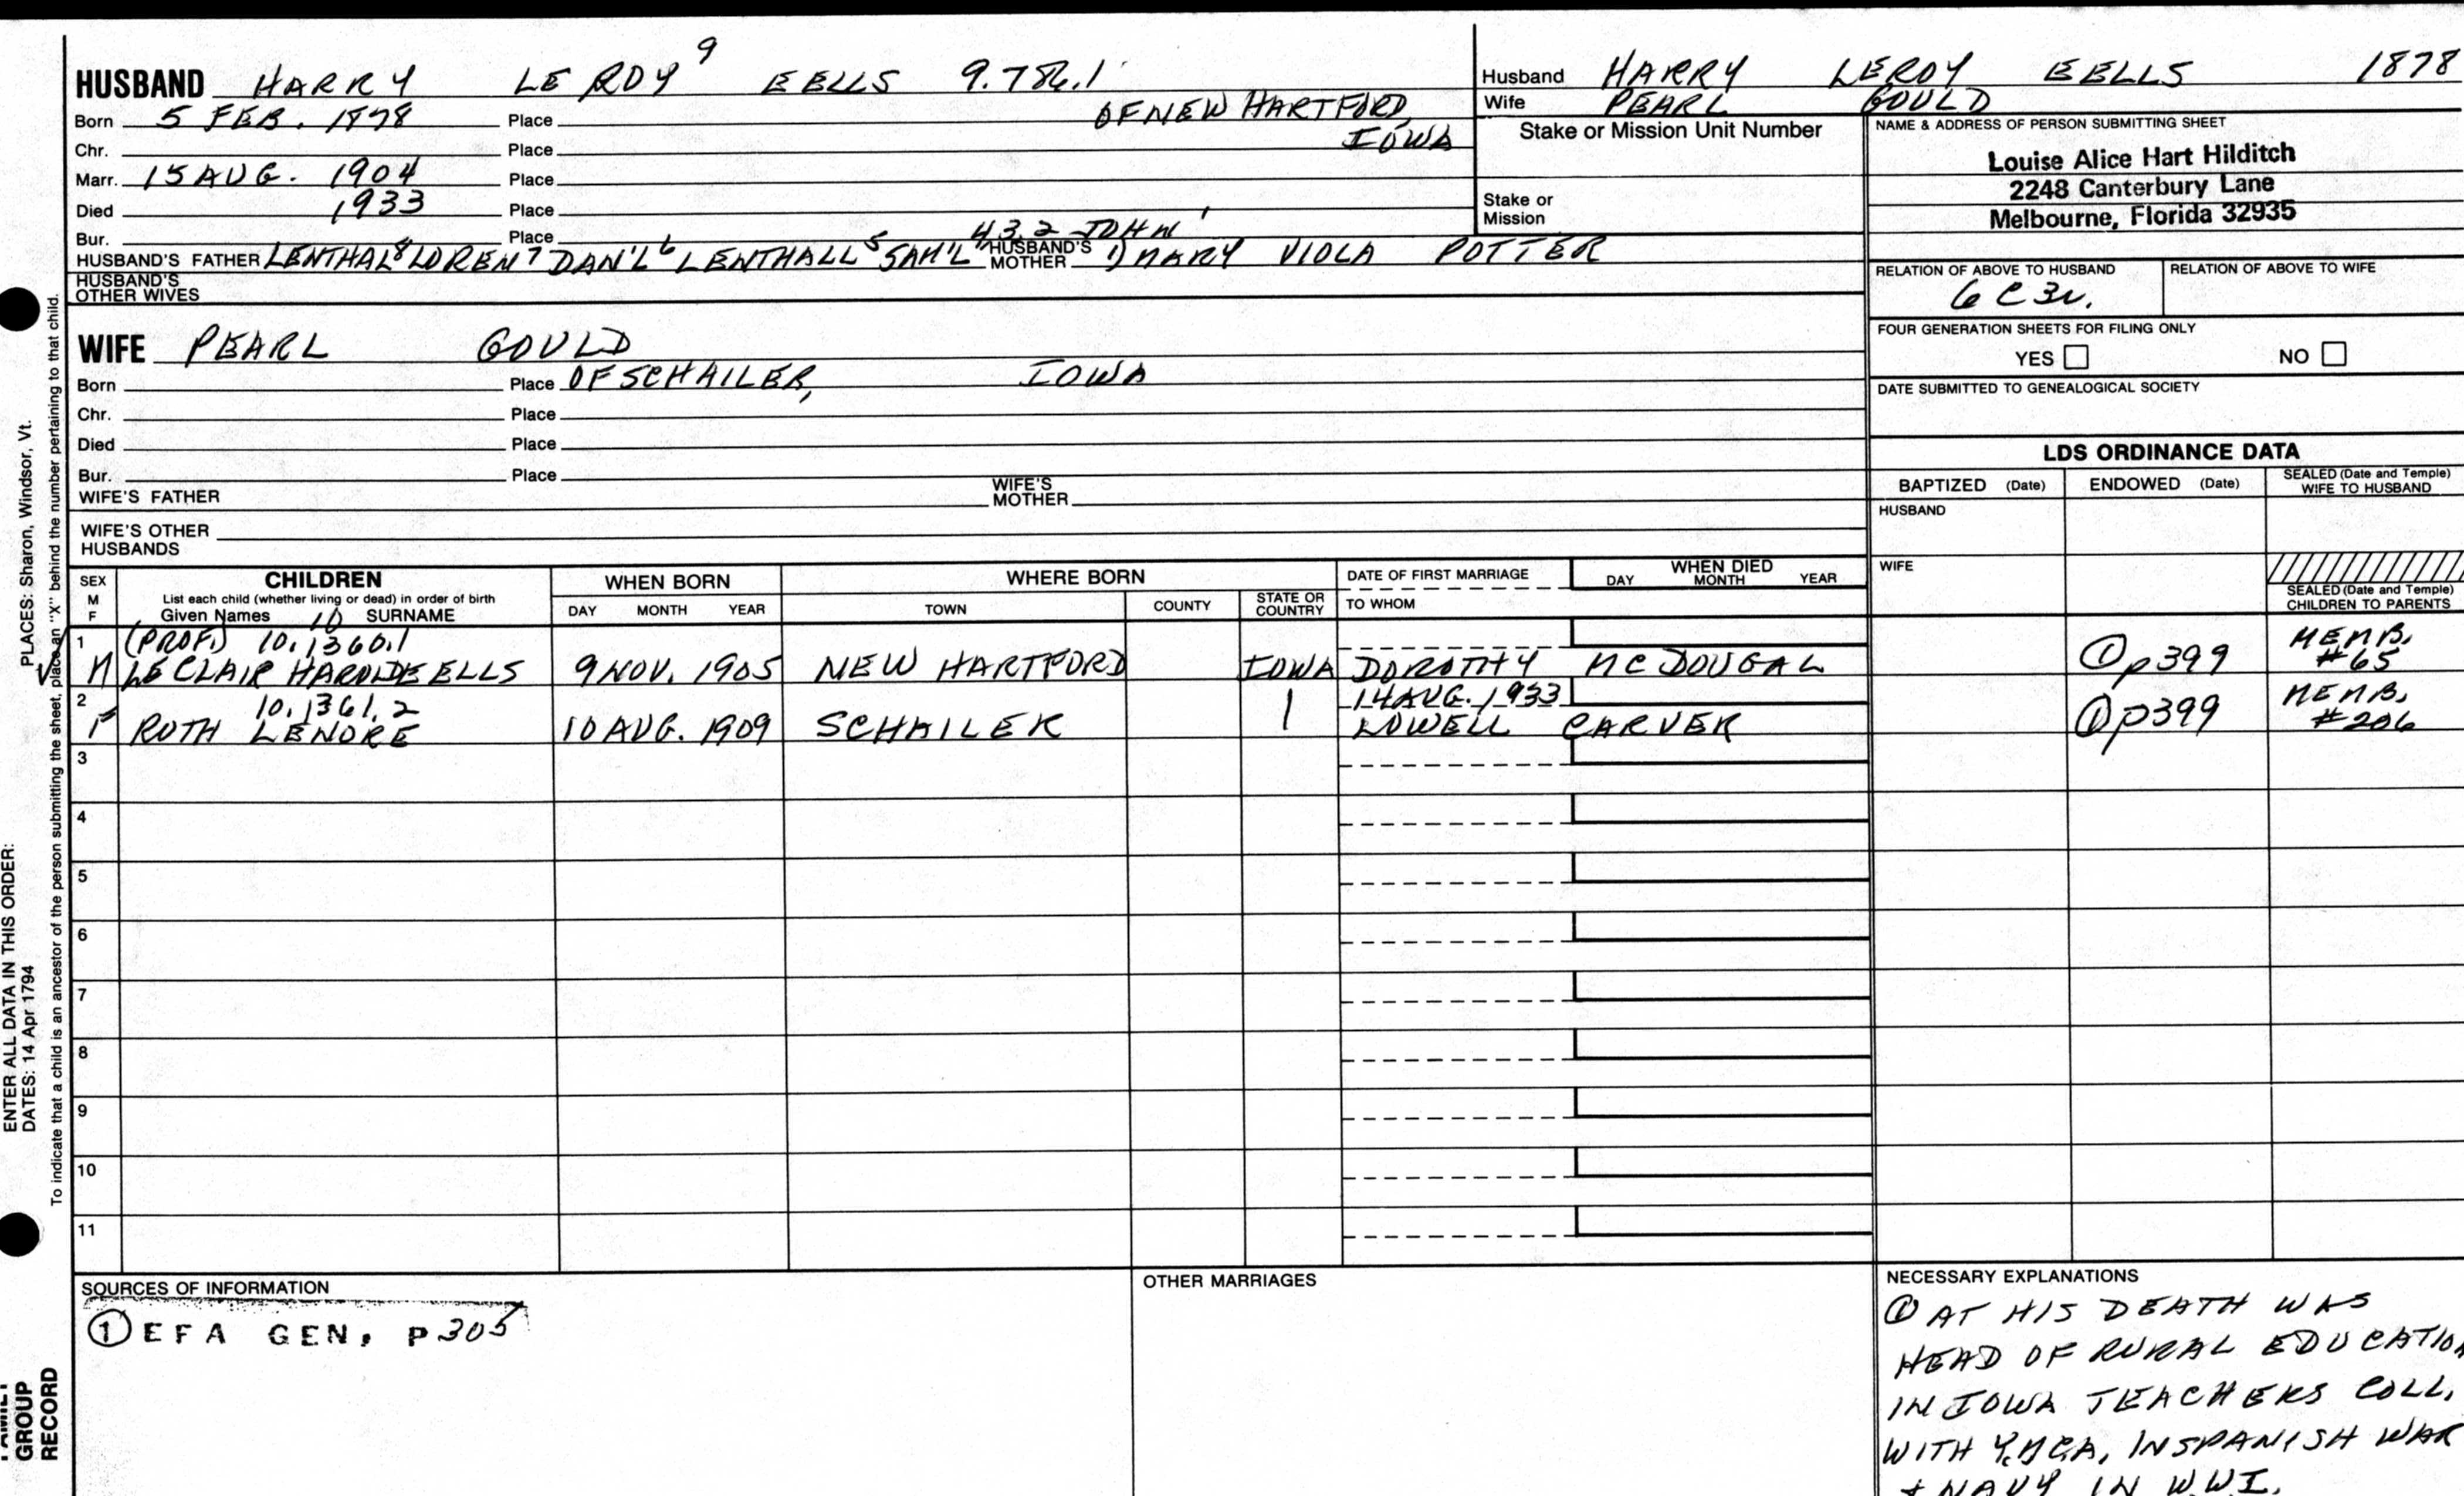 HUSBAND HARRY LE ROY 9 EELLS 9.786.1
Born 5 FEB. 1878 Place OF NEW HARTFORD,
Chr. Place IOWA
Marr. 15 AUG. 1904 Place
Died 1933 Place
Bur. Place
4 3 2 JOHN 1
HUSBAND'S FATHER LENTHAL 8 LOREN 7 DAN'L 6 LENTHALL 5 SAM'L HUSBAND'S MOTHER 1) MARY VIOLA POTTER
HUSBAND'S OTHER WIVES
WIFE PEARL GOULD
Born Place OF SCHAILER, IOWA
Chr. Place
Died Place
Bur. Place
WIFE'S FATHER WIFE'S MOTHER
WIFE'S OTHER HUSBANDS
Husband HARRY LEROY EELLS 1878
Wife PEARL GOULD
Stake or Mission Unit Number
Stake or Mission
NAME & ADDRESS OF PERSON SUBMITTING SHEET
Louise Alice Hart Hilditch
2248 Canterbury Lane
Melbourne, Florida 32935
RELATION OF ABOVE TO HUSBAND RELATION OF ABOVE TO WIFE
6 C 3r.
FOUR GENERATION SHEETS FOR FILING ONLY
YES NO
DATE SUBMITTED TO GENEALOGICAL SOCIETY
LDS ORDINANCE DATA
BAPTIZED (Date) ENDOWED (Date) SEALED (Date and Temple) WIFE TO HUSBAND
HUSBAND
WIFE
SEALED (Date and Temple) CHILDREN TO PARENTS
SEX M F
CHILDREN
List each child (whether living or dead) in order of birth
Given Names 10 SURNAME
WHEN BORN
DAY MONTH YEAR
WHERE BORN
TOWN COUNTY STATE OR COUNTRY
DATE OF FIRST MARRIAGE
TO WHOM
WHEN DIED
DAY MONTH YEAR
1 (PROF.) 10.1360.1 MEMB.
M LE CLAIR HAROLDE EELLS 9 NOV. 1905 NEW HARTFORD IOWA DOROTHY MCDOUGAL ① p399 #65
2 10.1361.2 14 AUG. 1933 MEMB.
F RUTH LENORE 10 AUG. 1909 SCHAILER | LOWELL CARVER ① p399 #206
3
4
5
6
7
8
9
10
11
SOURCES OF INFORMATION
① EFA GEN, P305
OTHER MARRIAGES
NECESSARY EXPLANATIONS
① AT HIS DEATH WAS
HEAD OF RURAL EDUCATION
IN IOWA TEACHERS COLL,
WITH Y.M.C.A, IN SPANISH WAR
+ NAVY IN W.W.I.
PLACES: Sharon, Windsor, Vt.
To indicate that a child is an ancestor of the person submitting the sheet, place an "X" behind the number pertaining to that child.
ENTER ALL DATA IN THIS ORDER:
DATES: 14 Apr 1794
FAMILY
GROUP
RECORD